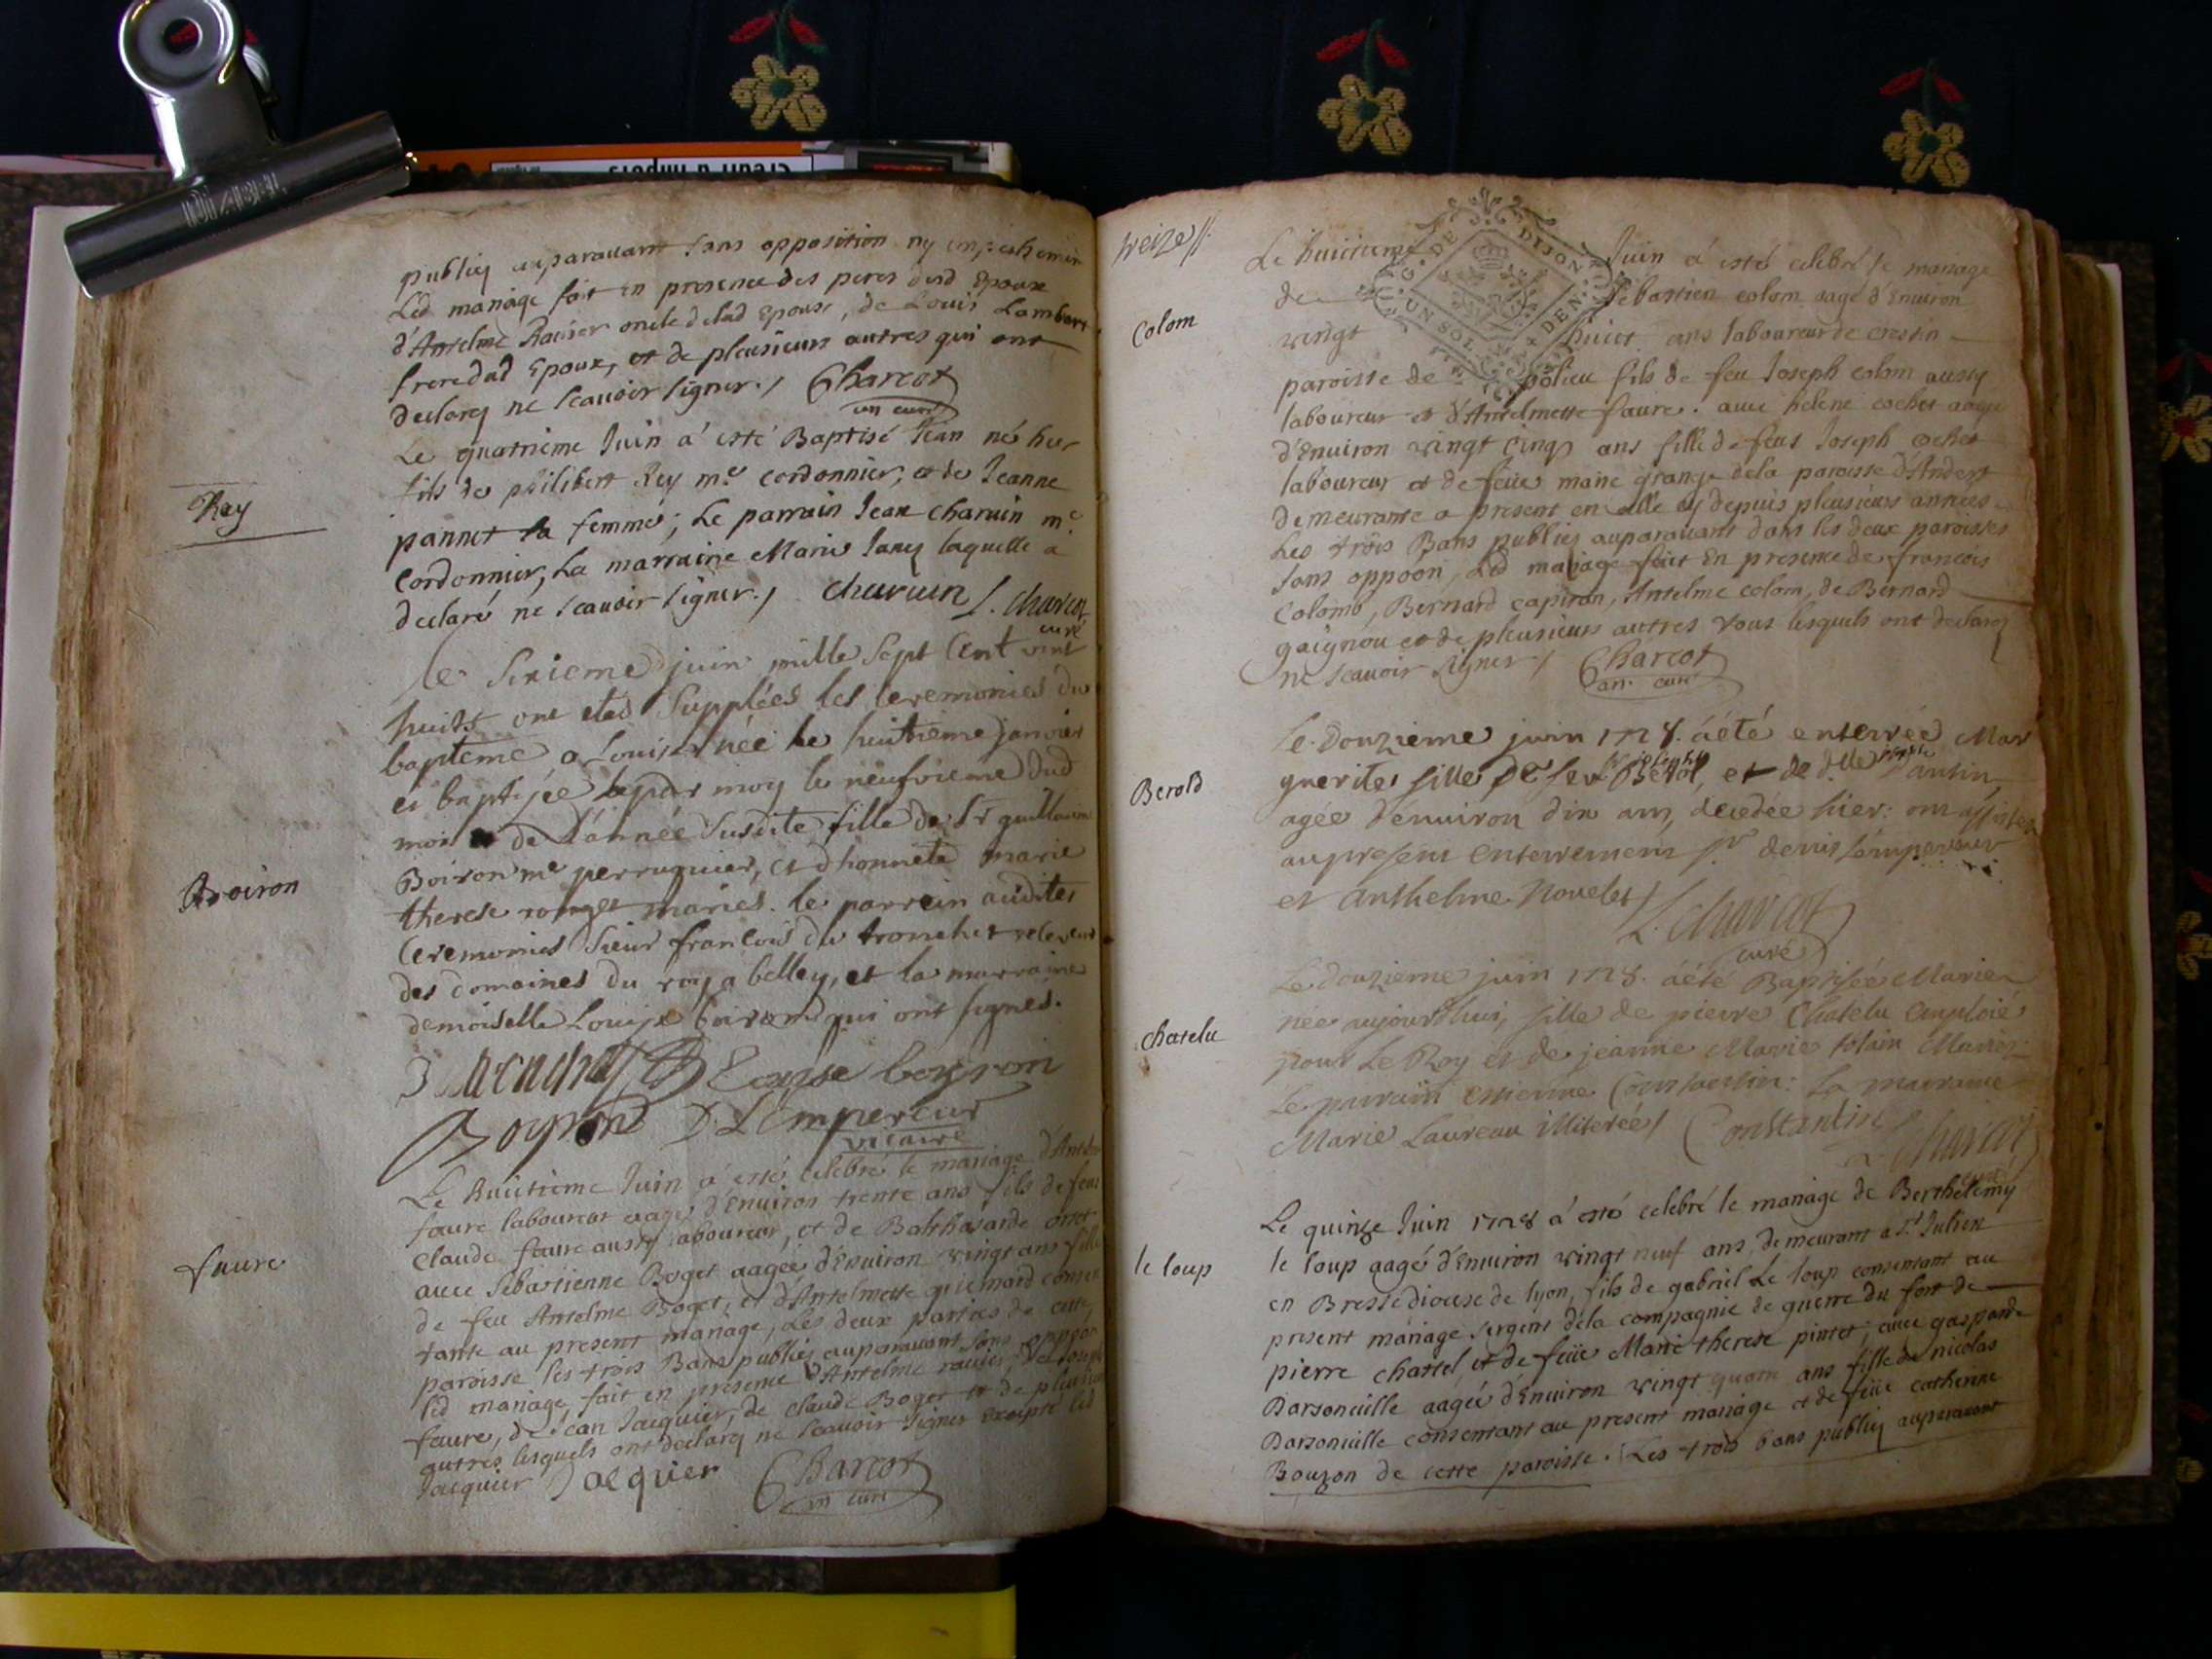 publiez auparavant sans opposition ny empeschemens
Led mariage fait en presence des peres dud Epoux
d'Anselme oncle de lad Epouse, de Louis Lambert
frere dud Epoux, et de plusieurs autres qui ont
declarez ne scavoir signer./ Charcot
curé
Rey
Le quatrieme Juin a esté Baptisé Jean né hier
fils de philibert Rey me cordonnier, et de Jeanne
pannet sa femme; Le parrain Jean charuin me
Cordonnier, La marraine Marie Janez laquelle a
declaré ne scavoir signer./ charuin J. charcot
curé
Le Sixieme juin mille Sept Cent vint
huitt ont etes Supplées les ceremonies du
bapteme a Louise née le huitieme janvier
et baptisée par moy le neufvieme dud
moi de L'année Susdite fille de Sr guillaume
Boiron
Boiron me perruquier, et dhonnete marie
therese mariés. le parrein audites
Ceremonies Sieur francois du tronchet releveur
des domaines du roy a belley, et la marraine
demoiselle Louise boiron qui ont signés.
Louise boyron
Boyron D. L'Empereur
vicaire
Le Huitieme Juin a esté celebré le mariage
faure laboureur aagé d'Environ trente ans fils de feu
Claude faure aussy laboureur, et de Balthasarde
faure
avec Sebastienne Boget aagée d'Environ vingt ans fille
de feu Antelme Boget, et d'Antelmette
tante au present mariage, Les deux parties de cette
paroisse les trois Bans publiez auparavant sans
led mariage fait en presence d'Antelme
faure, de Jean Jacquier, de claude Boget et de plusieurs
autres lesquels ont declarez ne scavoir signer Excepté led
Jacquier Jacquier Charcot
curé
treize
Le huitieme Juin a esté celebré le mariage
G. DE DIJON
UN SOL 4 DEN.
de Sebastien colom aagé d'Environ
Colom
vingt huict ans laboureur de cressin
paroisse de polieu fils de feu Joseph colom aussy
laboureur et d'Antelmette faure. avec helene cochet aagée
d'Environ vingt cinq ans fille de feus Joseph cochet
laboureur et de feüe marie grange de la paroisse d'Andert
demeurante a present en cette depuis plusieurs années
Les trois Bans publiez auparavant dans les deux paroisses
sans oppoon, Led mariage fait En presence de francois
Colomb, Bernard capiron, Antelme colom, de Bernard
gaignou et de plusieurs autres tous lesquels ont declarez
ne scavoir signer./ Charcot
curé
Le Douzieme juin 1728. a été enterrée Mar
Berold
guerite fille de feu Berol, et de dlle
agée d'environ dix ans, decedée hier: ont assistez
au present enterrement Sr denis L'empereur
et Anthelme Novelet/
J. charcot
curé
Le douzieme juin 1728. a été Baptisée Marie
née aujourdhui, fille de pierre Chatelu emploié
chatelu
pour Le Roy et de jeanne Marie Mariez:
Le parrain estienne Constantin: La marraine
Marie Laureau illiterée/ Constantin charcot
curé
Le quinze Juin 1728 a esté celebré le mariage de Berthelemy
le loup
le loup aagé d'Environ vingt neuf ans demeurant a St Julien
en Bresse diocese de lyon, fils de gabriel Le loup consentant au
present mariage sergent dela compagnie de guerre du fort de
pierre chastel, et de feüe Marie therese pintet; avec gasparde
Darsonville aagée d'Environ vingt quatre ans fille de nicolas
Darsonville consentant au present mariage et de feüe catherine
Bouzon de cette paroisse. Les trois bans publiez auparavant